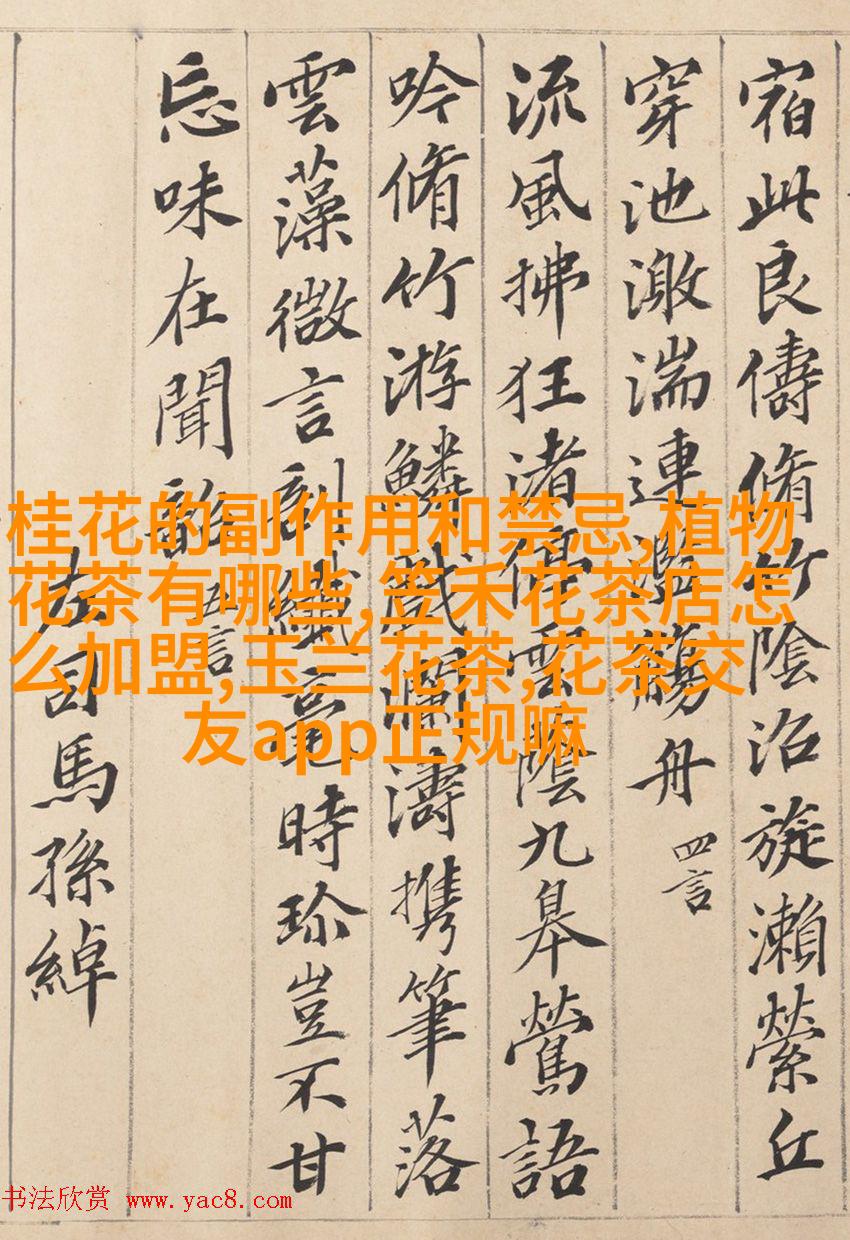 宿此良儔脩竹陰沼旋瀨縈丘
穿池激湍連濫觴舟 四言
流風拂狂渚停雲陰九皋鶯語
吟脩竹游鱗戲瀾濤携筆落
雲藻微言剖纖毫時珍豈不甘
忘味在聞韶 五言
左司馬孫綽
桂花的副作用和禁忌,植物
花茶有哪些,笠禾花茶店怎
么加盟,玉兰花茶,花茶交
友app正规嘛
书法欣赏 www.yac8.com